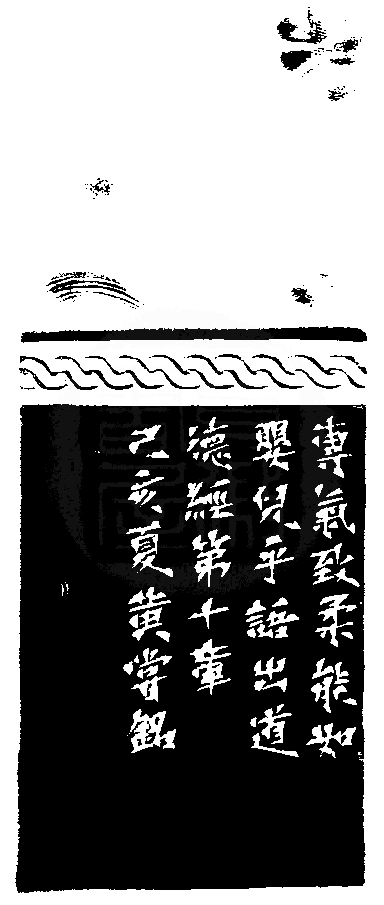 專氣致柔能如
嬰兒乎語出道
德經第十章
己亥夏黄嘗銘